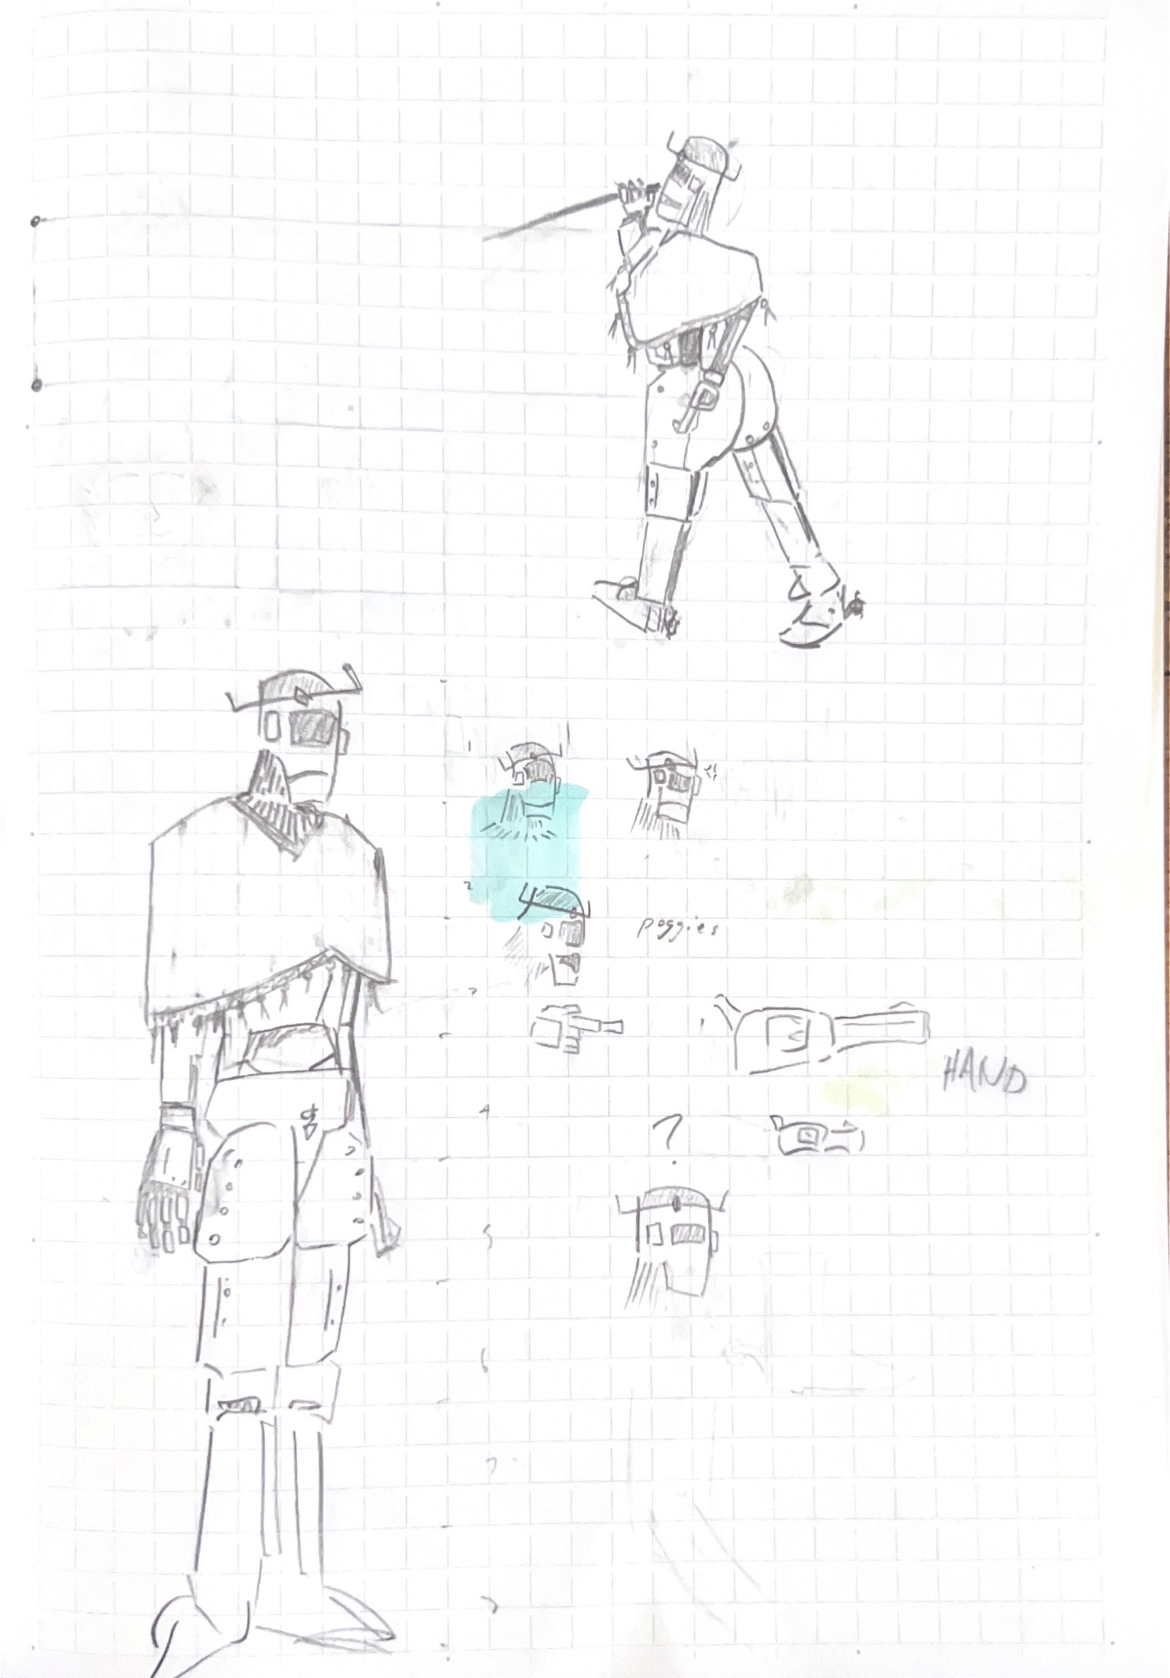 1
2
poggies
3
HAND
4
?
5
6
7